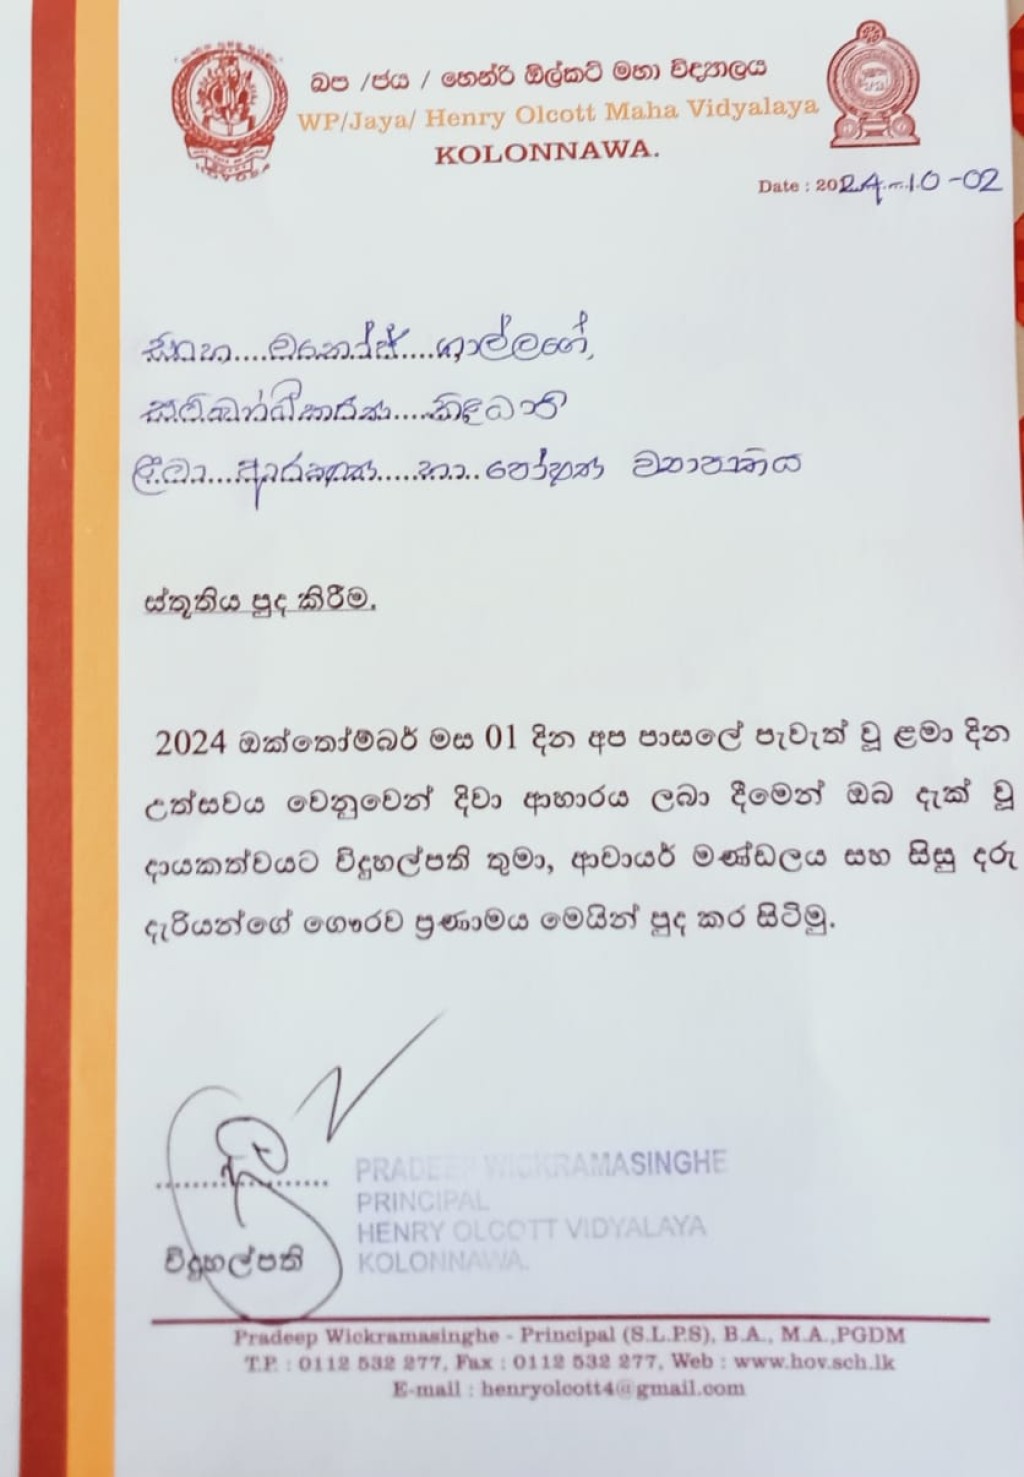 බප /ජය / හෙන්රි ඕල්කට් මහා විද්‍යාලය
WP/Jaya/ Henry Olcott Maha Vidyalaya
KOLONNAWA.
Date : 2024-10-02
ගාල්ලගේ,
සම්බන්ධීකරණ.....නිළධාරී
ළමා...ආරක්ෂණ......හා..පෝෂණ ව්‍යාපෘතිය
ස්තූතිය පුද කිරීම.
2024 ඔක්තෝම්බර් මස 01 දින අප පාසලේ පැවැත් වූ ළමා දින
උත්සවය වෙනුවෙන් දිවා ආහාරය ලබා දීමෙන් ඔබ දැක් වූ
දායකත්වයට විදුහල්පති තුමා, ආචාර්ය මණ්ඩලය සහ සිසු දරු
දැරියන්ගේ ගෞරව ප්‍රණාමය මෙයින් පුද කර සිටිමු.
PRADEEP WICKRAMASINGHE
PRINCIPAL
HENRY OLCOTT VIDYALAYA
KOLONNAWA.
විදුහල්පති
Pradeep Wickramasinghe - Principal (S.L.P.S), B.A., M.A.,PGDM
T.P. : 0112 532 277, Fax : 0112 532 277, Web : www.hov.sch.lk
E-mail : henryolcott4@gmail.com